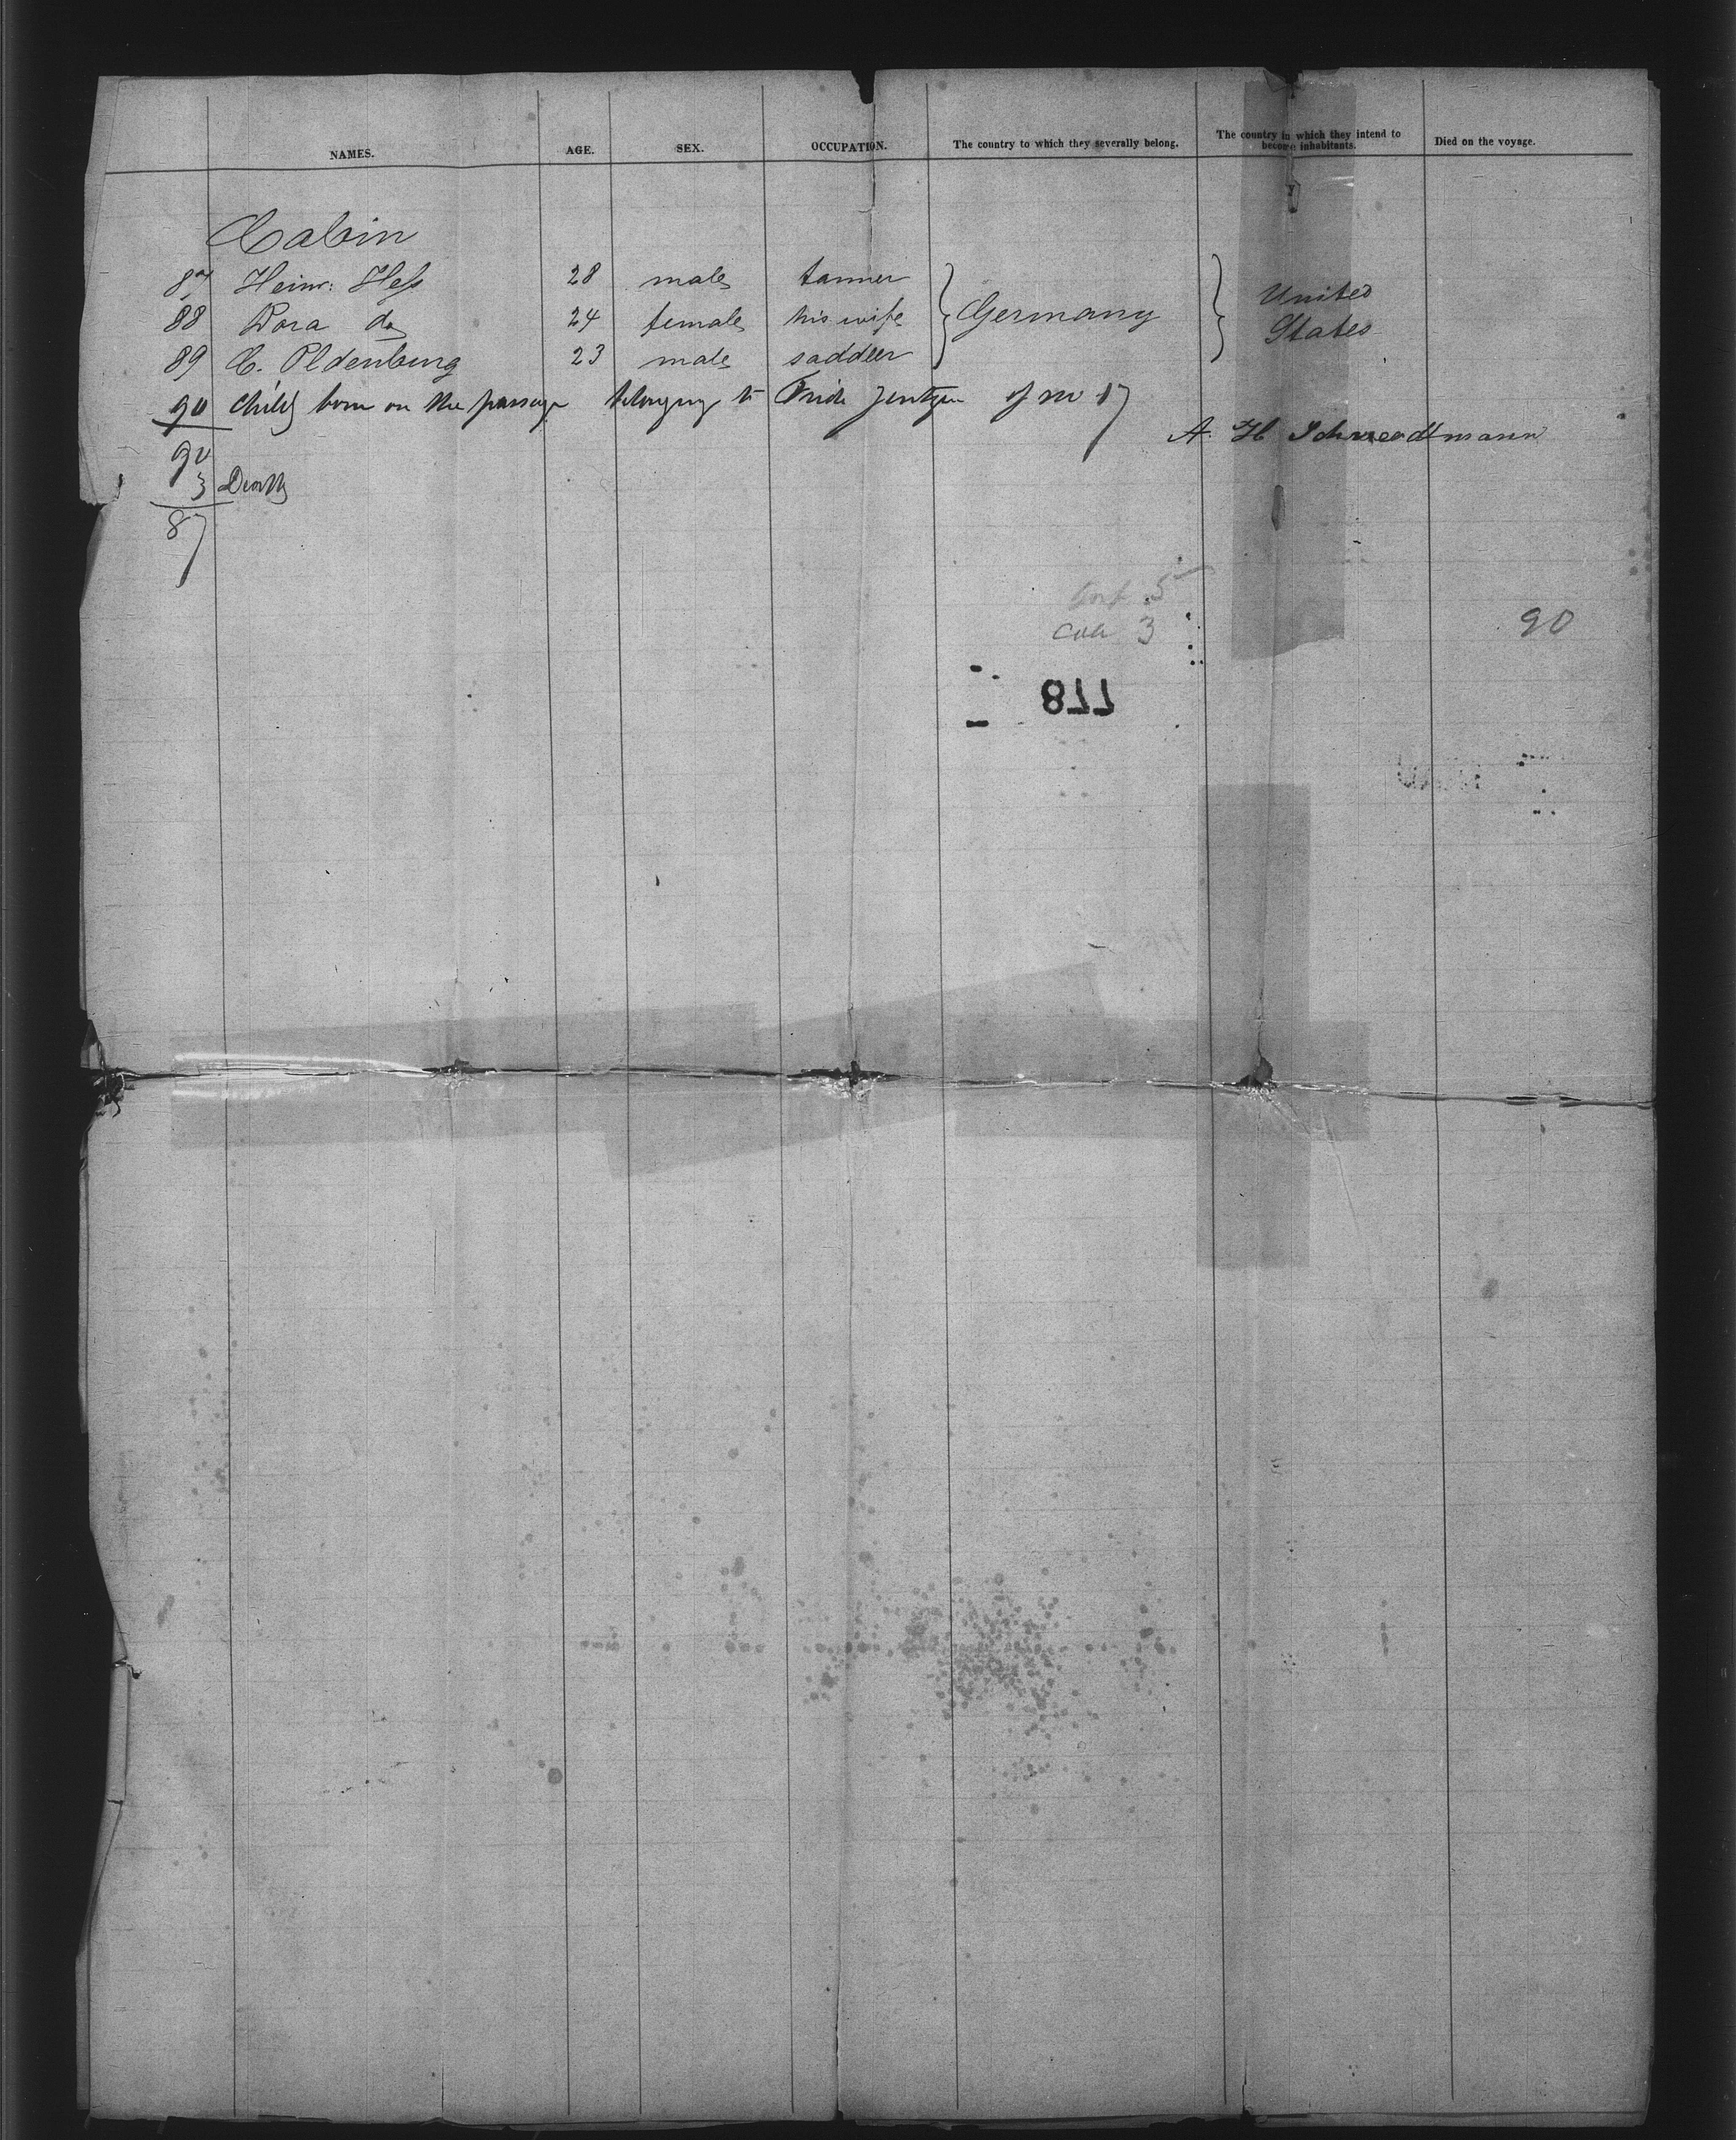 NAMES. AGE. SEX. OCCUPATION. The country to which they severally belong. The country in which they intend to become inhabitants. Died on the voyage.
Cabin
87 Heinr: Hess 28 male tanner
88 Dora do 24 female his wife Germany United States
89 C. Oldenburg 23 male saddler
90 Child born on the passage belonging to of no 17
A. H. Schweedtmann
90
3 Deaths
87
5
3
90
877